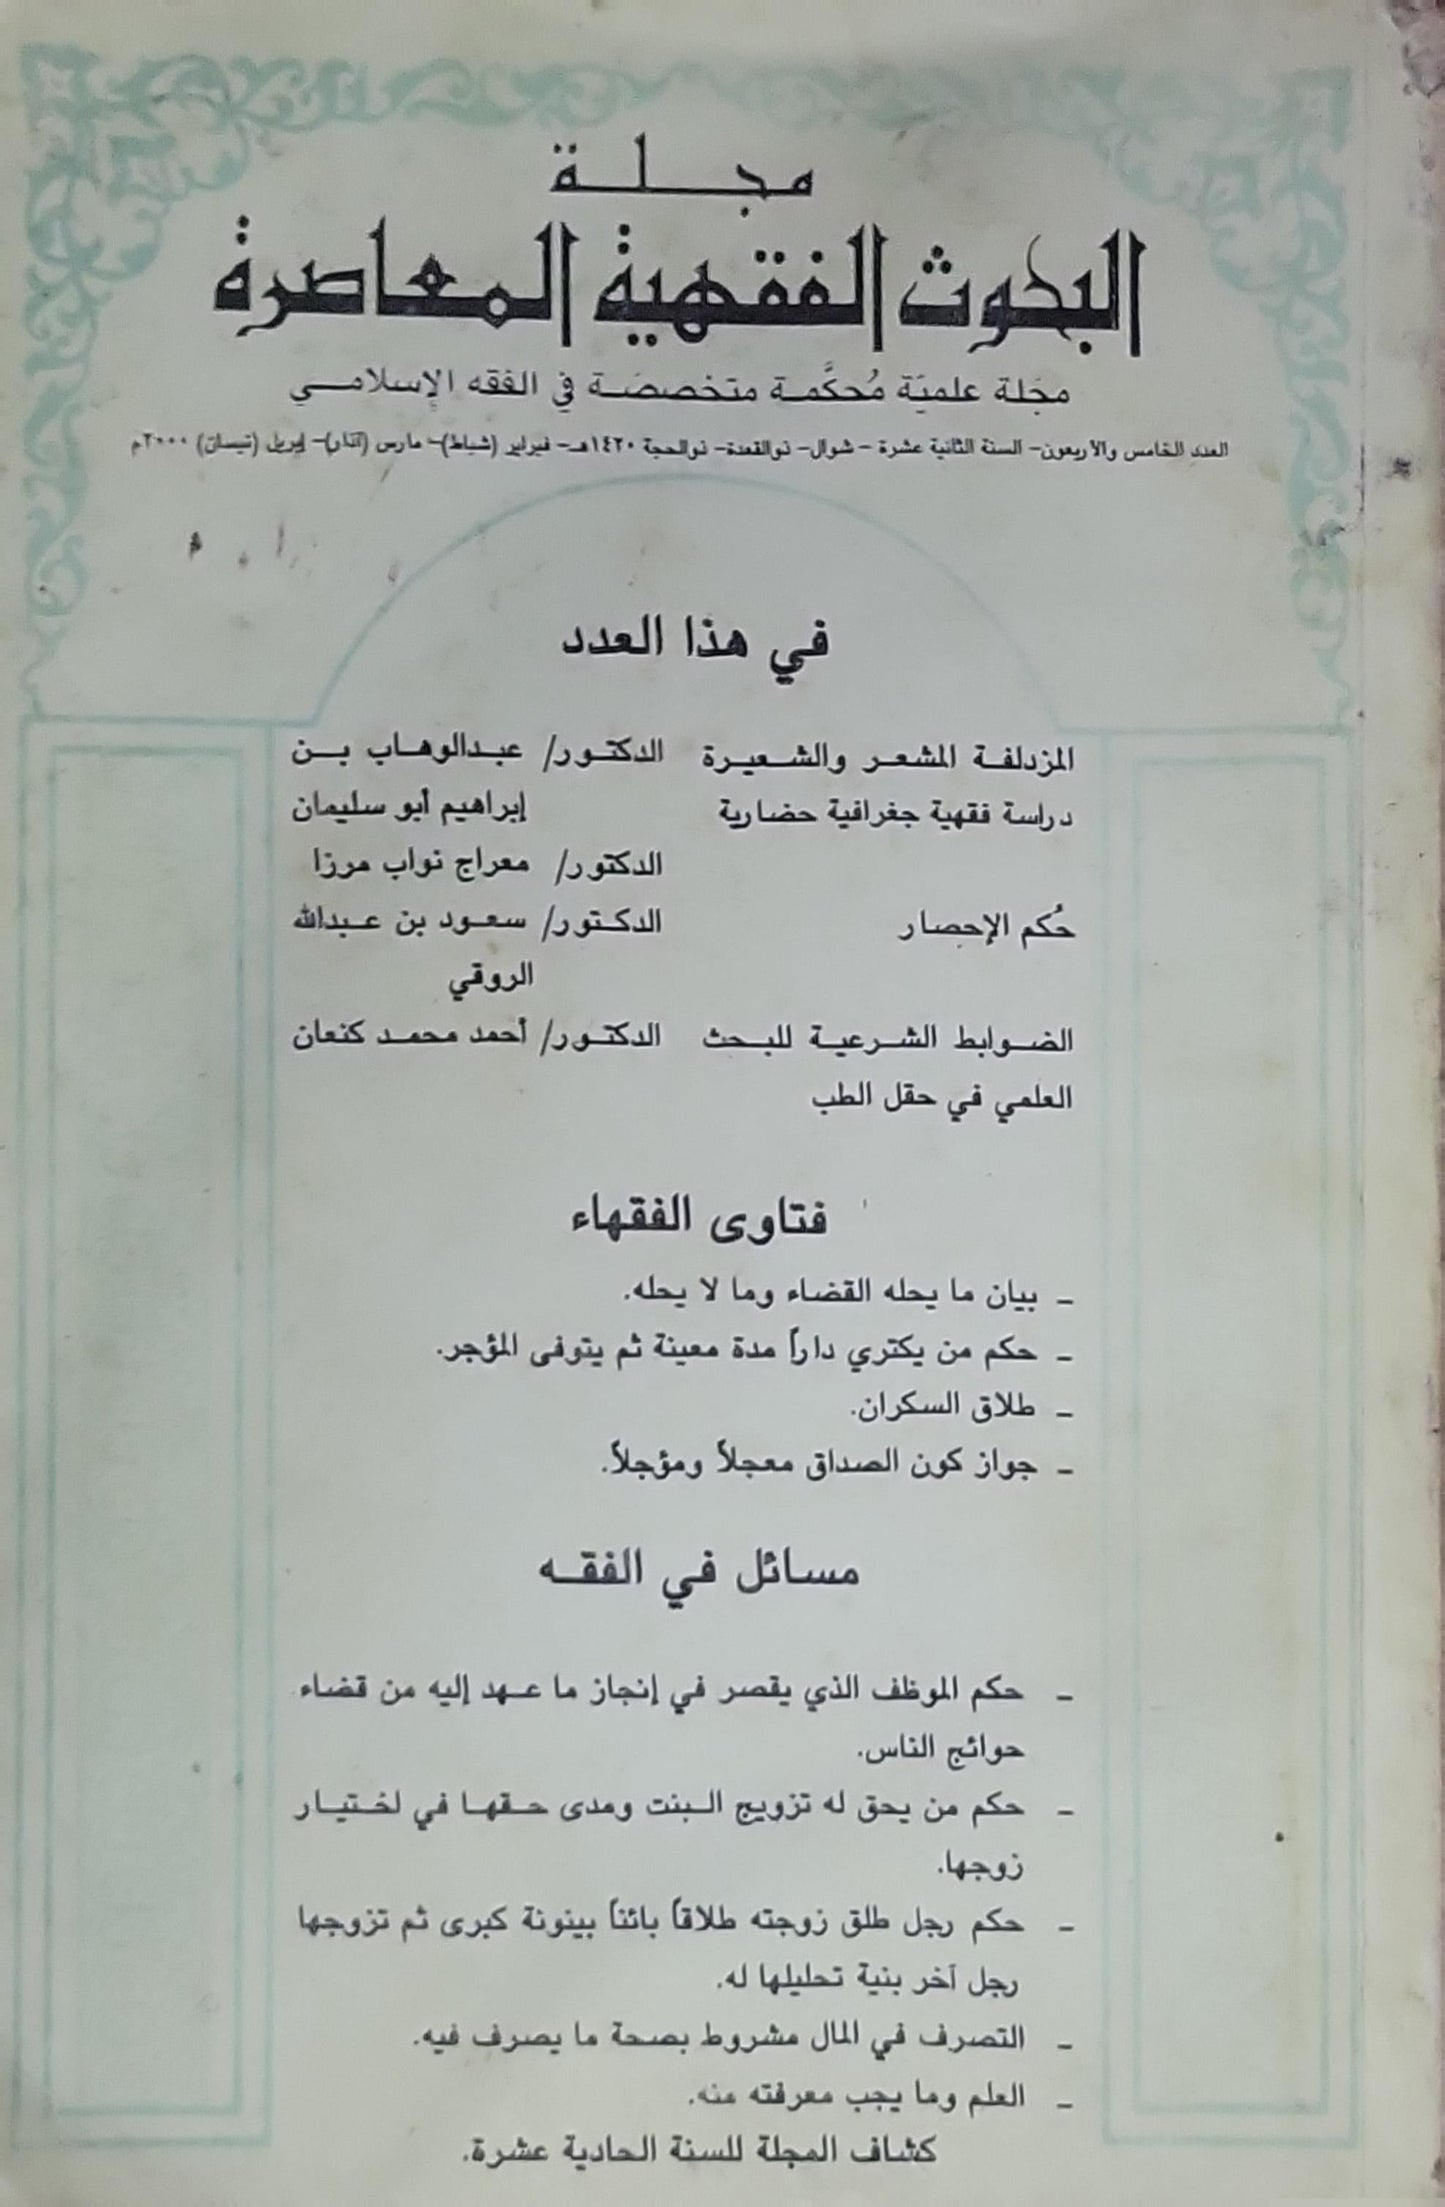 مجلة
البحوث الفقهية المعاصرة
مجلة علميّة مُحكَّمة متخصصة في الفقه الإسلامي
العدد الخامس والأربعون- السنة الثانية عشرة - شوال- ذوالقعدة- ذوالحجة ١٤٢٠هـ- فبراير (شباط)- مارس (آذار)- إبريل (نيسان) ٢٠٠٠م
في هذا العدد
المزدلفة المشعر والشعيرة الدكتور/ عبدالوهاب بن
دراسة فقهية جغرافية حضارية إبراهيم أبو سليمان
الدكتور/ معراج نواب مرزا
حُكم الإحصار الدكتور/ سعود بن عبدالله
الروقي
الضوابط الشرعية للبحث الدكتور/ أحمد محمد كنعان
العلمي في حقل الطب
فتاوى الفقهاء
- بيان ما يحله القضاء وما لا يحله.
- حكم من يكتري داراً مدة معينة ثم يتوفى المؤجر.
- طلاق السكران.
- جواز كون الصداق معجلاً ومؤجلاً.
مسائل في الفقه
- حكم الموظف الذي يقصر في إنجاز ما عهد إليه من قضاء
حوائج الناس.
- حكم من يحق له تزويج البنت ومدى حقها في اختيار
زوجها.
- حكم رجل طلق زوجته طلاقاً بائناً بينونة كبرى ثم تزوجها
رجل آخر بنية تحليلها له.
- التصرف في المال مشروط بصحة ما يصرف فيه.
- العلم وما يجب معرفته منه.
كشاف المجلة للسنة الحادية عشرة.